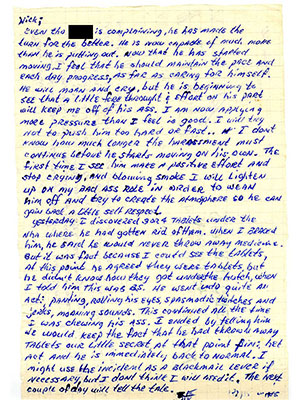 Nick;
Even tho is complaining, he has made the
turn for the better. He is now capable of much more
than he is putting out. Now that he has started
moving, I feel that he should maintain the pace and
each day progress, as far as caring for himself.
He will moan and cry, but he is beginning to
see that a little forethought & effort on his part
will keep me off of his ass. I am now applying
more pressure than I feel is good. I will try
not to push him too hard or fast.. I don't
know how much longer the harassment must
continue before he starts moving on his own. The
first time I see him make a positive effort and
stop crying, and blowing smoke I will lighten
up on my bad ass role in order to wean
him off and try to create the atmosphere so he can
gain back a little self respect.
yesterday I discovered tablets under the
where he had gotten rid of them. When I asked
him, he said he would never throw away medicine.
But it was fact because I could see the tablets,
At this point he agreed they were tablets but
he didn't know how they got under the hutch, when
I told him this was BS. He went into quite an
act: panting, rolling his eyes, spasmodic twitches and
jerks, moaning sounds. This continued all the time
I was chewing his ass. I ended by telling him
I would keep the fact that he had thrown away
tablets our little secret at that point fini: he
act and he is immediately, back to normal. I
might use the incident as a blackmail lever if
necessary, but I don't think I will need it. The next
couple of day will tell the tale.